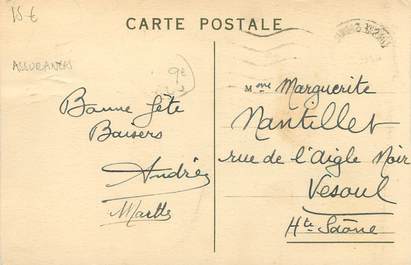 15 €
CARTE POSTALE
ASSURANCES
9€
Bonne fête
Baisers
Andrée
Marthe
Mme Marguerite
Nantillet
rue de l'Aigle Noir
Vesoul
Hte Saône